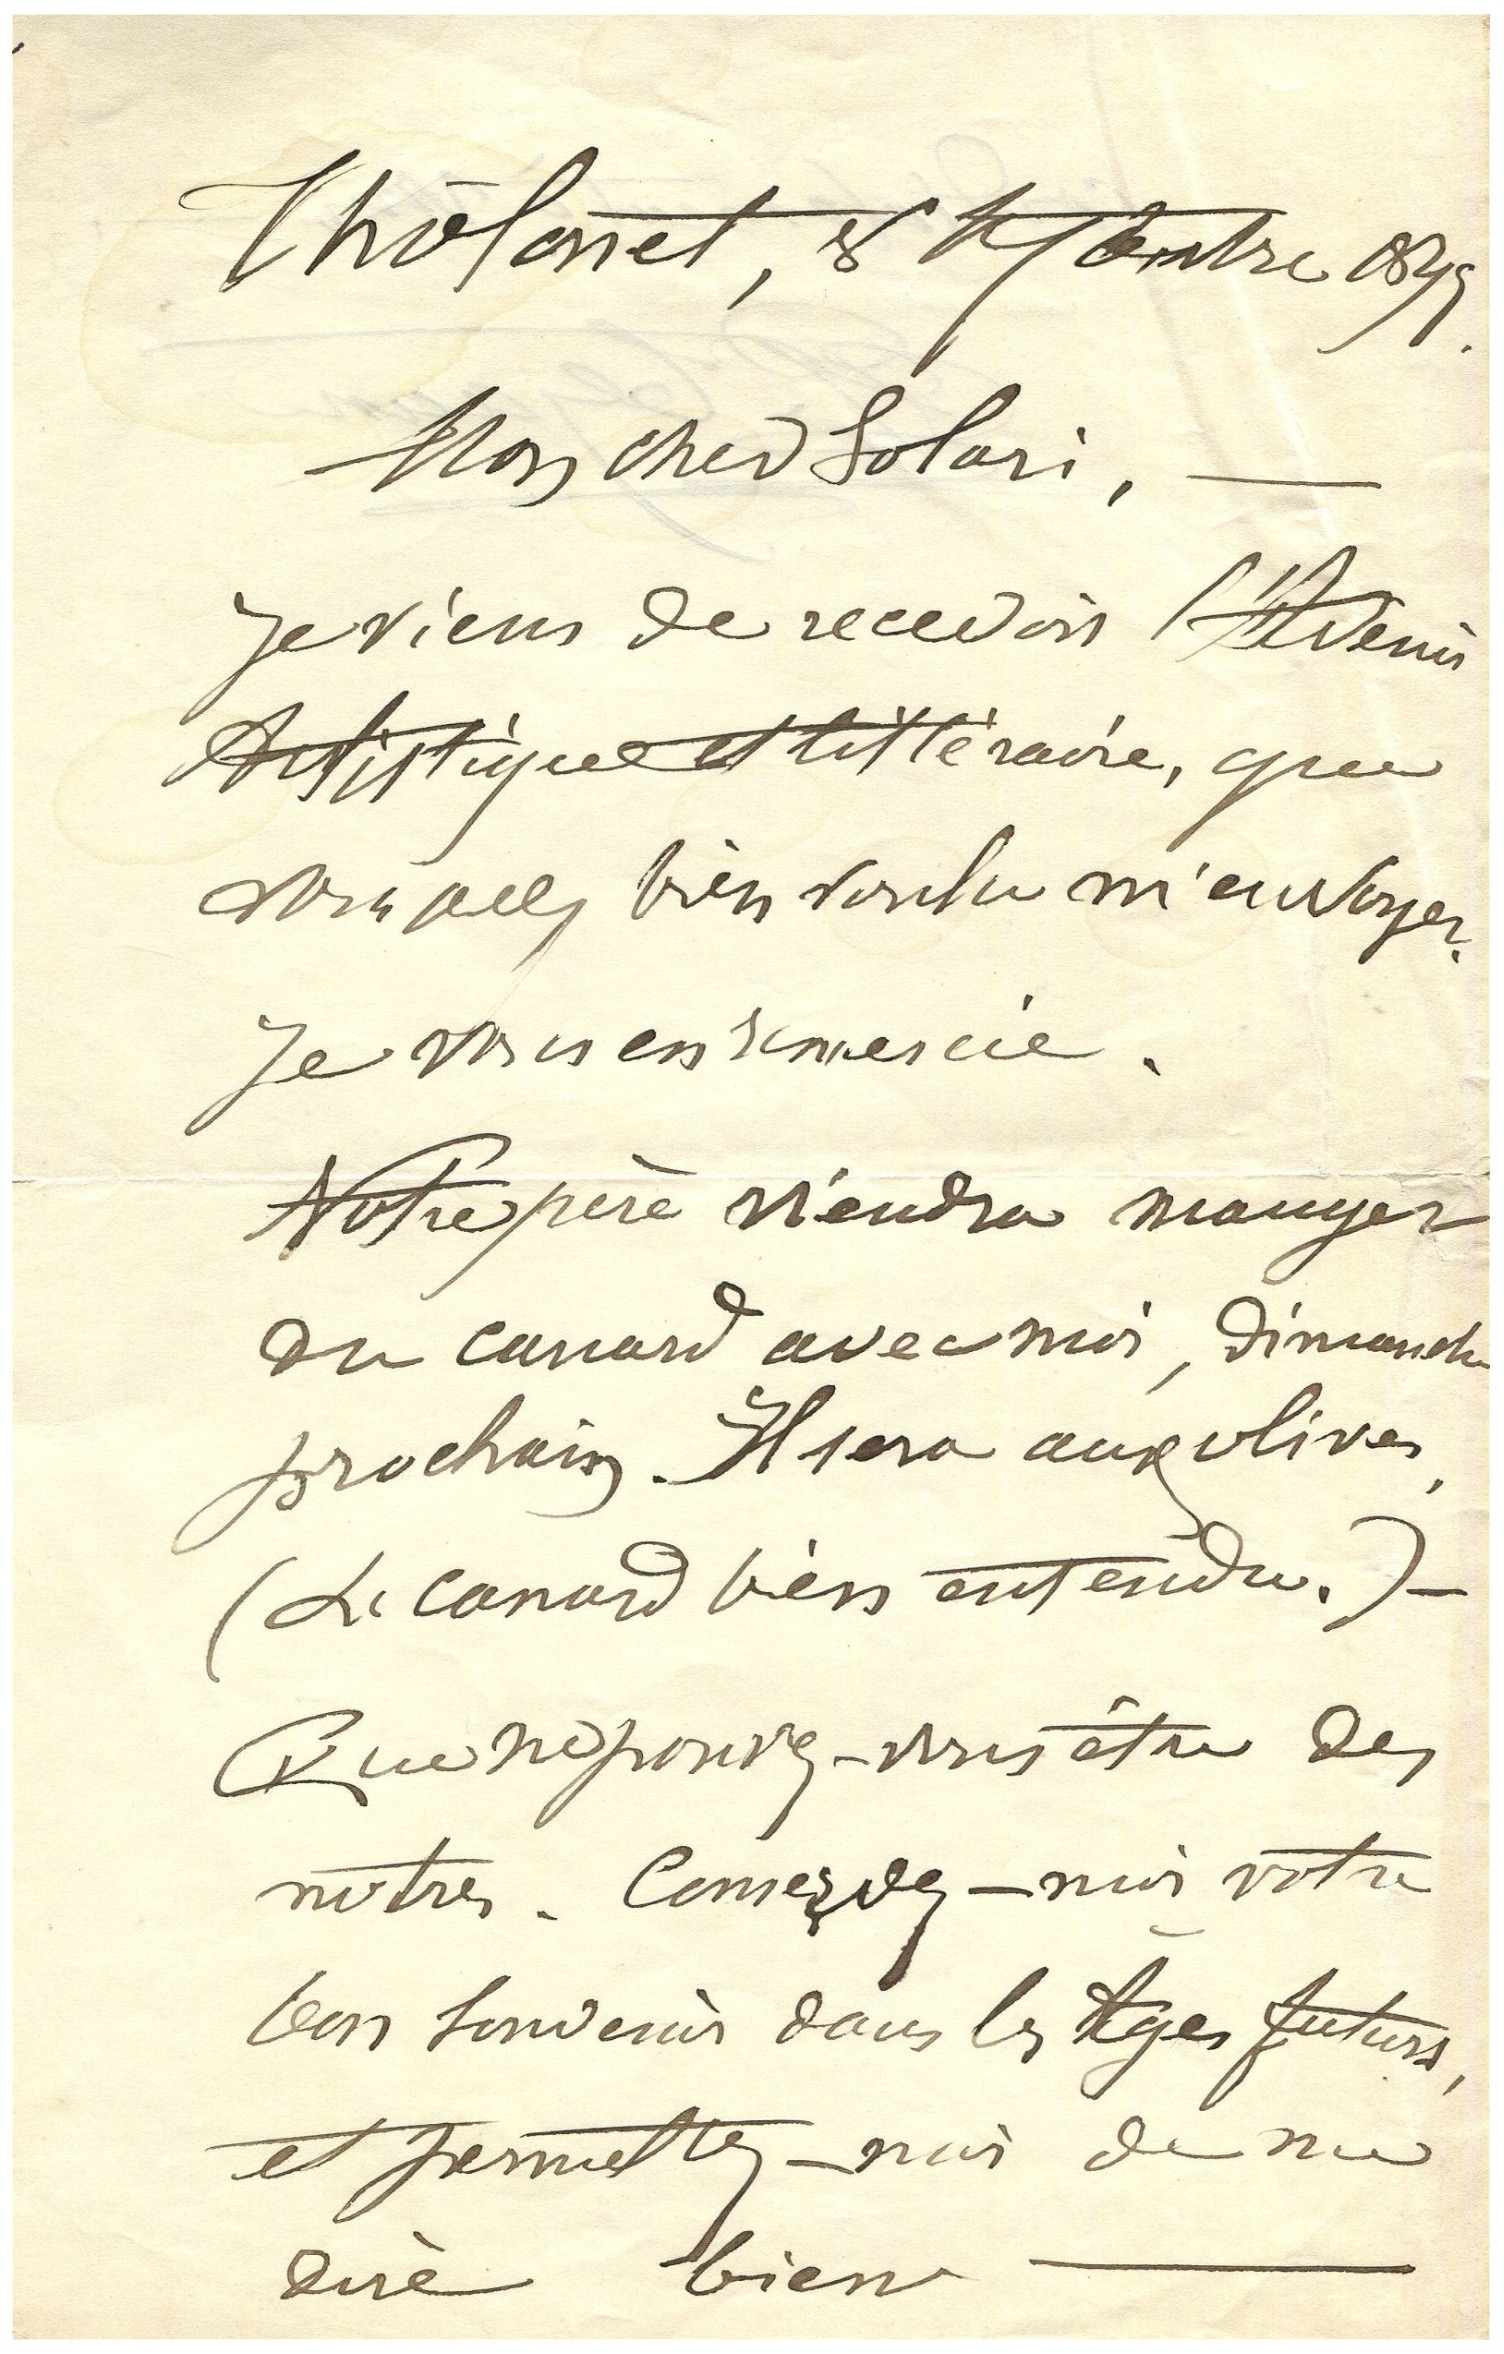 Tholonet, 8 septembre 1897.
Mon cher Solari,
Je viens de recevoir l'Avenir
Artistique et littéraire, que
vous avez bien voulu m'envoyer.
Je vous en remercie.
Votre père viendra manger
du canard avec moi, dimanche
prochain. Il sera aux olives,
(Le canard bien entendu.) —
Que ne pouvez-vous être des
nôtres. Conservez-moi votre
bon souvenir dans les Ages futurs,
et permettez-moi de me
dire bien —